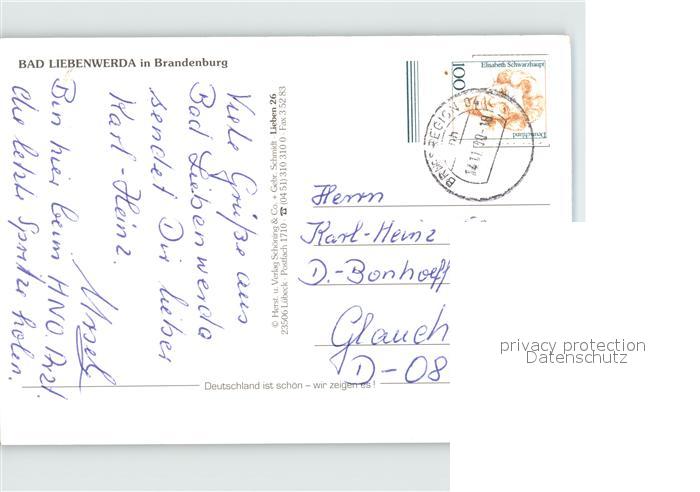 BAD LIEBENWERDA in Brandenburg
Viele Grüße aus
Bad Liebenwerda
sendet Dir lieber
Karl-Heinz.
Ursel
Bin hier beim HNO. Arzt.
die letzte Spritze holen.
© Herst. u. Verlag Schöning & Co. + Gebr. Schmidt · Lieben 26
23506 Lübeck · Postfach 1710 · ☎ (04 51) 310 310 0 · Fax 3 52 83
Elisabeth Schwarzhaupt
100
Deutschland
Herrn
Karl-Heinz
D.-Bonhoeff
Glauch
D-08
Deutschland ist schön – wir zeigen es !
privacy protection
Datenschutz